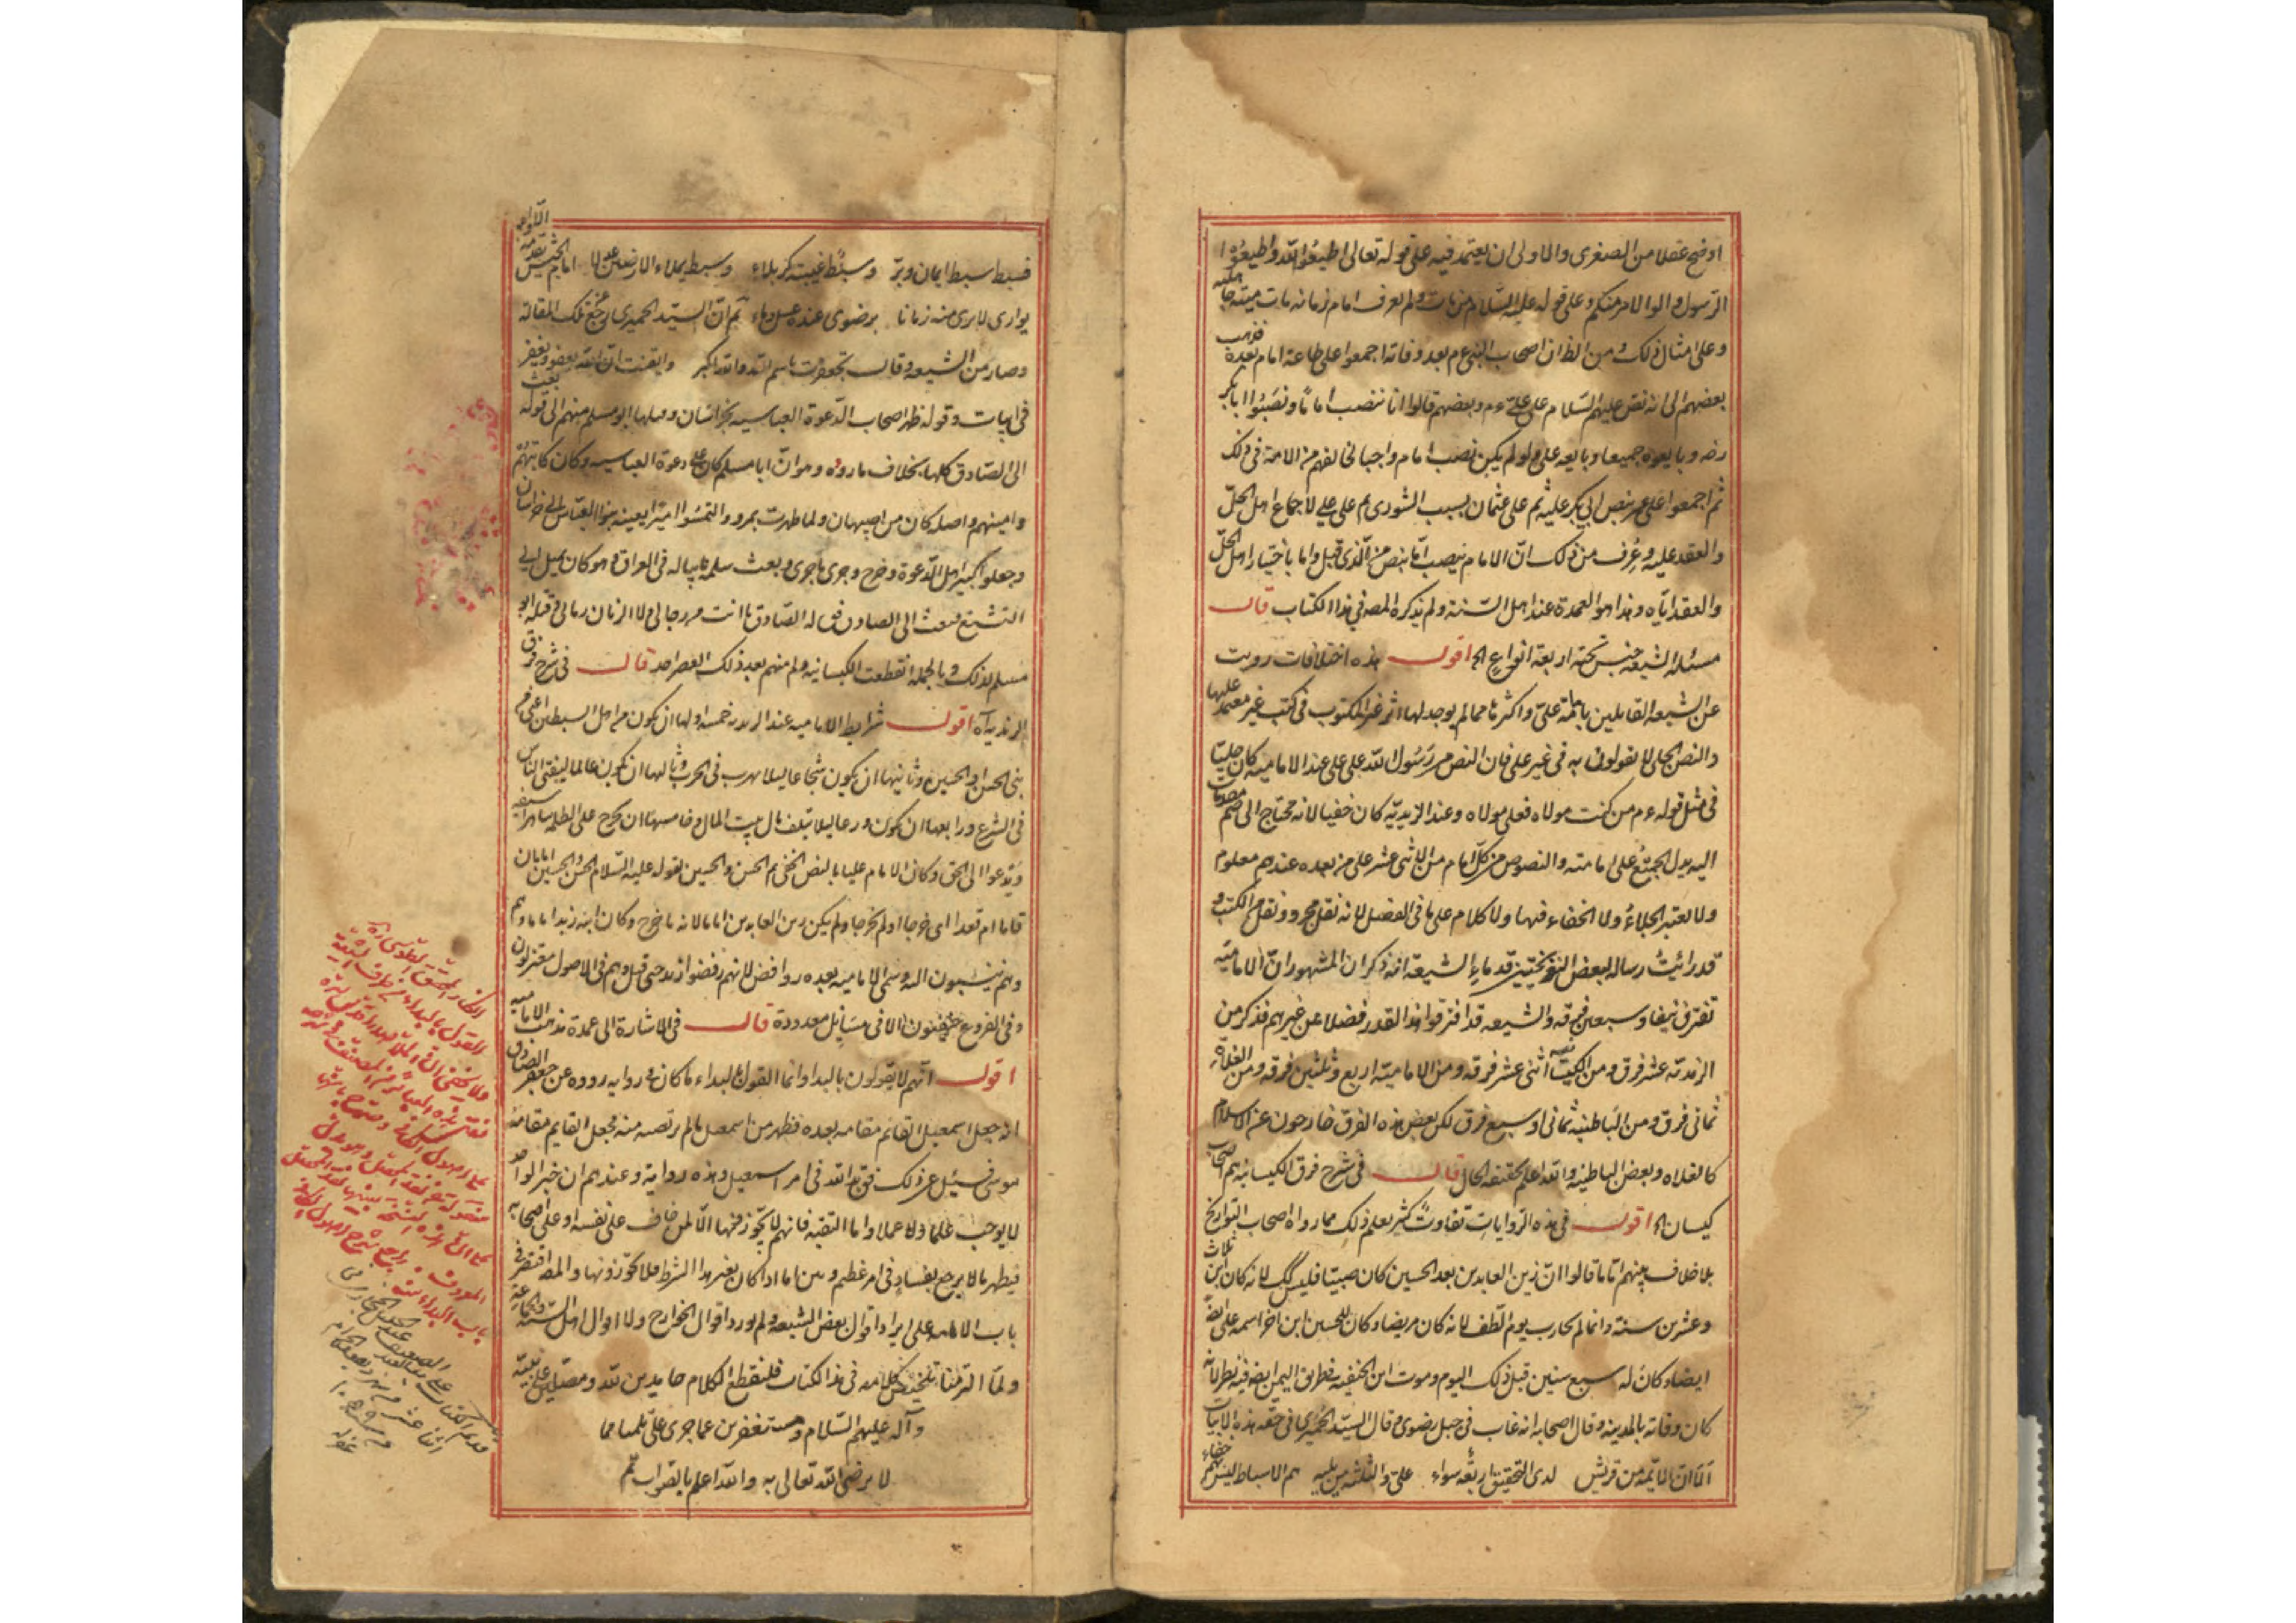 اوضح عقلا من الصغرى والاولى ان يعتمد فيه على قوله تعالى اطيعوا الله واطيعوا
الرسول واولوا الامر منكم وعلى قوله عليه السلام من مات ولم يعرف امام زمانه مات ميتة جاهلية
وعلى امثال ذلك ومن الظ ان اصحاب النبي ءم بعد وفاته اجمعوا على طاعة امام بعده فذهب
بعضهم الى انه نص عليه السلام على علي ءم وبعضهم قالوا انا ننصب اماما ونصبوا ابا بكر
رضه وبايعوه جميعا وبايعه على ولو لم يكن نصب امام واجبا لخالفهم من الامة في ذلك
ثم اجمعوا على عمر بنص ابي بكر عليه ثم على عثمان بسبب الشورى ثم على علي لاجماع اهل الحل
والعقد عليه وعرف من ذلك ان الامام ينصب اما بنص من الذي قبل واما باختيار اهل الحل
والعقد اياه وهذا هو العمدة عند اهل السنة ولم يذكره المصه في هذا الكتاب قال
مسئلة الشيعة جنس تحته اربعة انواع الخ اقول هذه اختلافات رويت
عن الشيعة القايلين بامامة علي واكثرها مما لم يوجد لها اثر غير المكتوب في كتب غير معتمد عليها
والنص الجلي لا يقولون به في غير علي فان النص من رسول الله على علي عند الامامية كان جليا
في مثل قوله ءم من كنت مولاه فعلي مولاه وعند الزيدية كان خفيا لانه محتاج الى ضم مقدمات
اليه يدل الجميع على امامته والنصوص من كل امام من الاثنى عشر على من بعده عندهم معلوم
ولا يعتبر الجلاء ولا الخفاء فيها ولا كلام على ما في الفصل لانه نقل مجرد ونقل من الكتب و
قد رأيت رسالة لبعض النوبختيين قدماء الشيعة انه ذكر ان المشهور ان الامامية
تفترق نيفا وسبعين فرقه والشيعه قد افترقوا هذا القدر فضلا عن غيرهم فذكر من
الزيدية عشر فرق ومن الكيسانية اثنى عشر فرقه ومن الامامية اربع وثلثين فرقه ومن الغلاة
ثماني فرق ومن الباطنية ثماني او سبع فرق لكن بعض هذه الفرق خارجون عن الاسلام
كالغلاه وبعض الباطنية والله اعلم بحقيقة الحال قال في شرح فرق الكيسانية هم اصحاب
كيسان الخ اقول في هذه الروايات تفاوت كثير يعلم ذلك مما رواه اصحاب التواريخ
بلا خلاف بينهم اما ما قالوا ان زين العابدين بعد الحسين كان صبيا فليس كك لانه كان ابن ثلاث
وعشرين سنة وانما لم يحارب يوم الطف لانه كان مريضا وكان للحسين ابن اخر اسمه علي ايضا
ايضا وكان له سبع سنين قبل ذلك اليوم وموت ابن الحنفيه بطريق اليمن ايضا فيه نظر لانه
كان وفاته بالمدينه وقال اصحابه انه غاب في جبل رضوى وقال السيد الحميري في حقه هذه الابيات
الا ان الائمة من قريش لدى التحقيق اربعة سواء علي والثلثة من بنيه هم الاسباط ليس بهم خفاء
فسبط سبط ايمان وبر وسبط غيبته كربلاء وسبط يملاء الارضين عدلا امام الجيش يقدمه اللواء
يوارى لا يرى منه زمانا برضوى عنده عسل وماء ثم ان السيد الحميرى رجع عن تلك المقالة
وصار من الشيعه وقال تجعفرت باسم الله والله اكبر وايقنت ان الله يعفو ويغفر
في ابيات وقوله ظهر اصحاب الدعوة العباسيه بخراسان وميلها ابو مسلم منهم الى قوله بعث
الى الصادق كلها بخلاف ما رووه وهو ان ابا مسلم كان على دعوة العباسيه وكان كاتبهم
وامينهم واصله كان من اصبهان ولما ظهرت بمرو والتمسوا اميرا يعينه بنوا العباس الى خراسان
وجعلوا كبير اهل الدعوة وخرج وجرى ما جرى وبعث سلمه في العراق وهو كان يميل الى
التشيع فبعث الى الصادق فقال له الصادق ما انت من رجالي ولا الزمان زماني وقتله ابو
مسلم لذلك وبالجملة انقطعت الكيسانية ولم منهم بعد ذلك العصر احد قال في شرح فرق
الزيدية اه اقول شرايط الامامية عند الزيديه خمسه اولها ان يكون من اهل السبطين اعني من
بني الحسن او الحسين وثانيها ان يكون شجاعا ليلا يهرب في الحرب وثالثها ان يكون عالما ليفتي الناس
في الشرع ورابعها ان يكون ورعا ليلا يتلف مال بيت المال وخامسها ان يخرج على الظلمة شاهرا سيفه
ويدعوا الى الحق وكان الامام عليا بالنص الخفي ثم الحسن والحسين لقوله عليه السلام الحسن والحسين امامان
قاما ام قعدا اى خرجا او لم يخرجا ولم يكن زين العابدين اماما لانه ما خرج وكان ابنه زيد اماما وهم
وهم ينسبون اليه وسمى الامامية بعده روافض لانهم رفضوا زيد حتى قتل وهم في الاصول معتزلون
وفي الفروع حنفيون الا في مسايل معدودة قال في الاشارة الى عمدة مذهب الامامية
اقول انهم لا يقولون بالبدا وانما القول بالبداء ما كان في روايه رووه عن جعفر الصادق
انه جعل اسمعيل القائم مقامه بعده فظهر من اسمعيل ما لم يرتضه منه فجعل القايم مقامه
موسى فسئل عن ذلك فق بدا لله في امر اسمعيل وهذه رواية وعندهم ان خبر الواحد
لا يوجب علما ولا عملا واما التقية فانهم لا يجوزونها الا لمن خاف على نفسه او على اصحابه
فيظهر ما لا يرجع بفساد في امر عظيم ديني اما اذا كان بغير هذا الشرط فلا يجوزونها والمصه اقتصر في
باب الامامة على ايراد اقوال بعض الشيعه ولم يورد اقوال الخوارج ولا اقوال اهل السنة والجماعة
ولما التزمنا تلخيص كلامه في هذا الكتاب فلنقطع الكلام حامدين لله ومصلين على نبيه
وآله عليهم السلام ومستغفرين عما جرى على قلمنا مما
لا يرضى الله تعالى به والله اعلم بالصواب تم